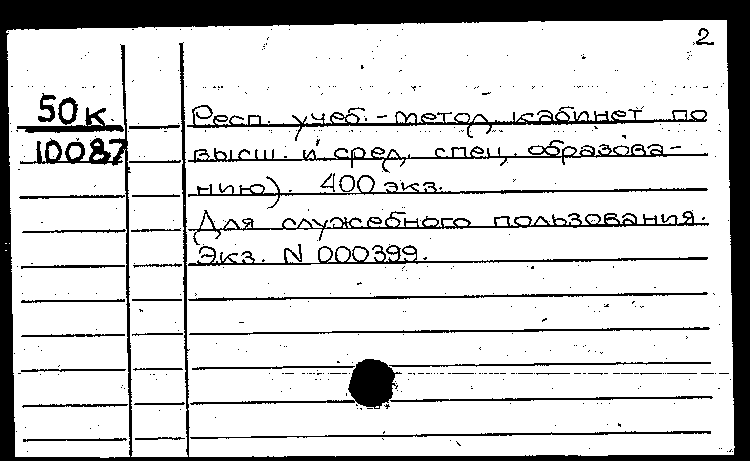 2
50к
10087
Респ. учеб.-метод. кабинет по
высш. и сред. спец. образова-
нию). 400 экз.
Для служебного пользования.
Экз. N 000399.